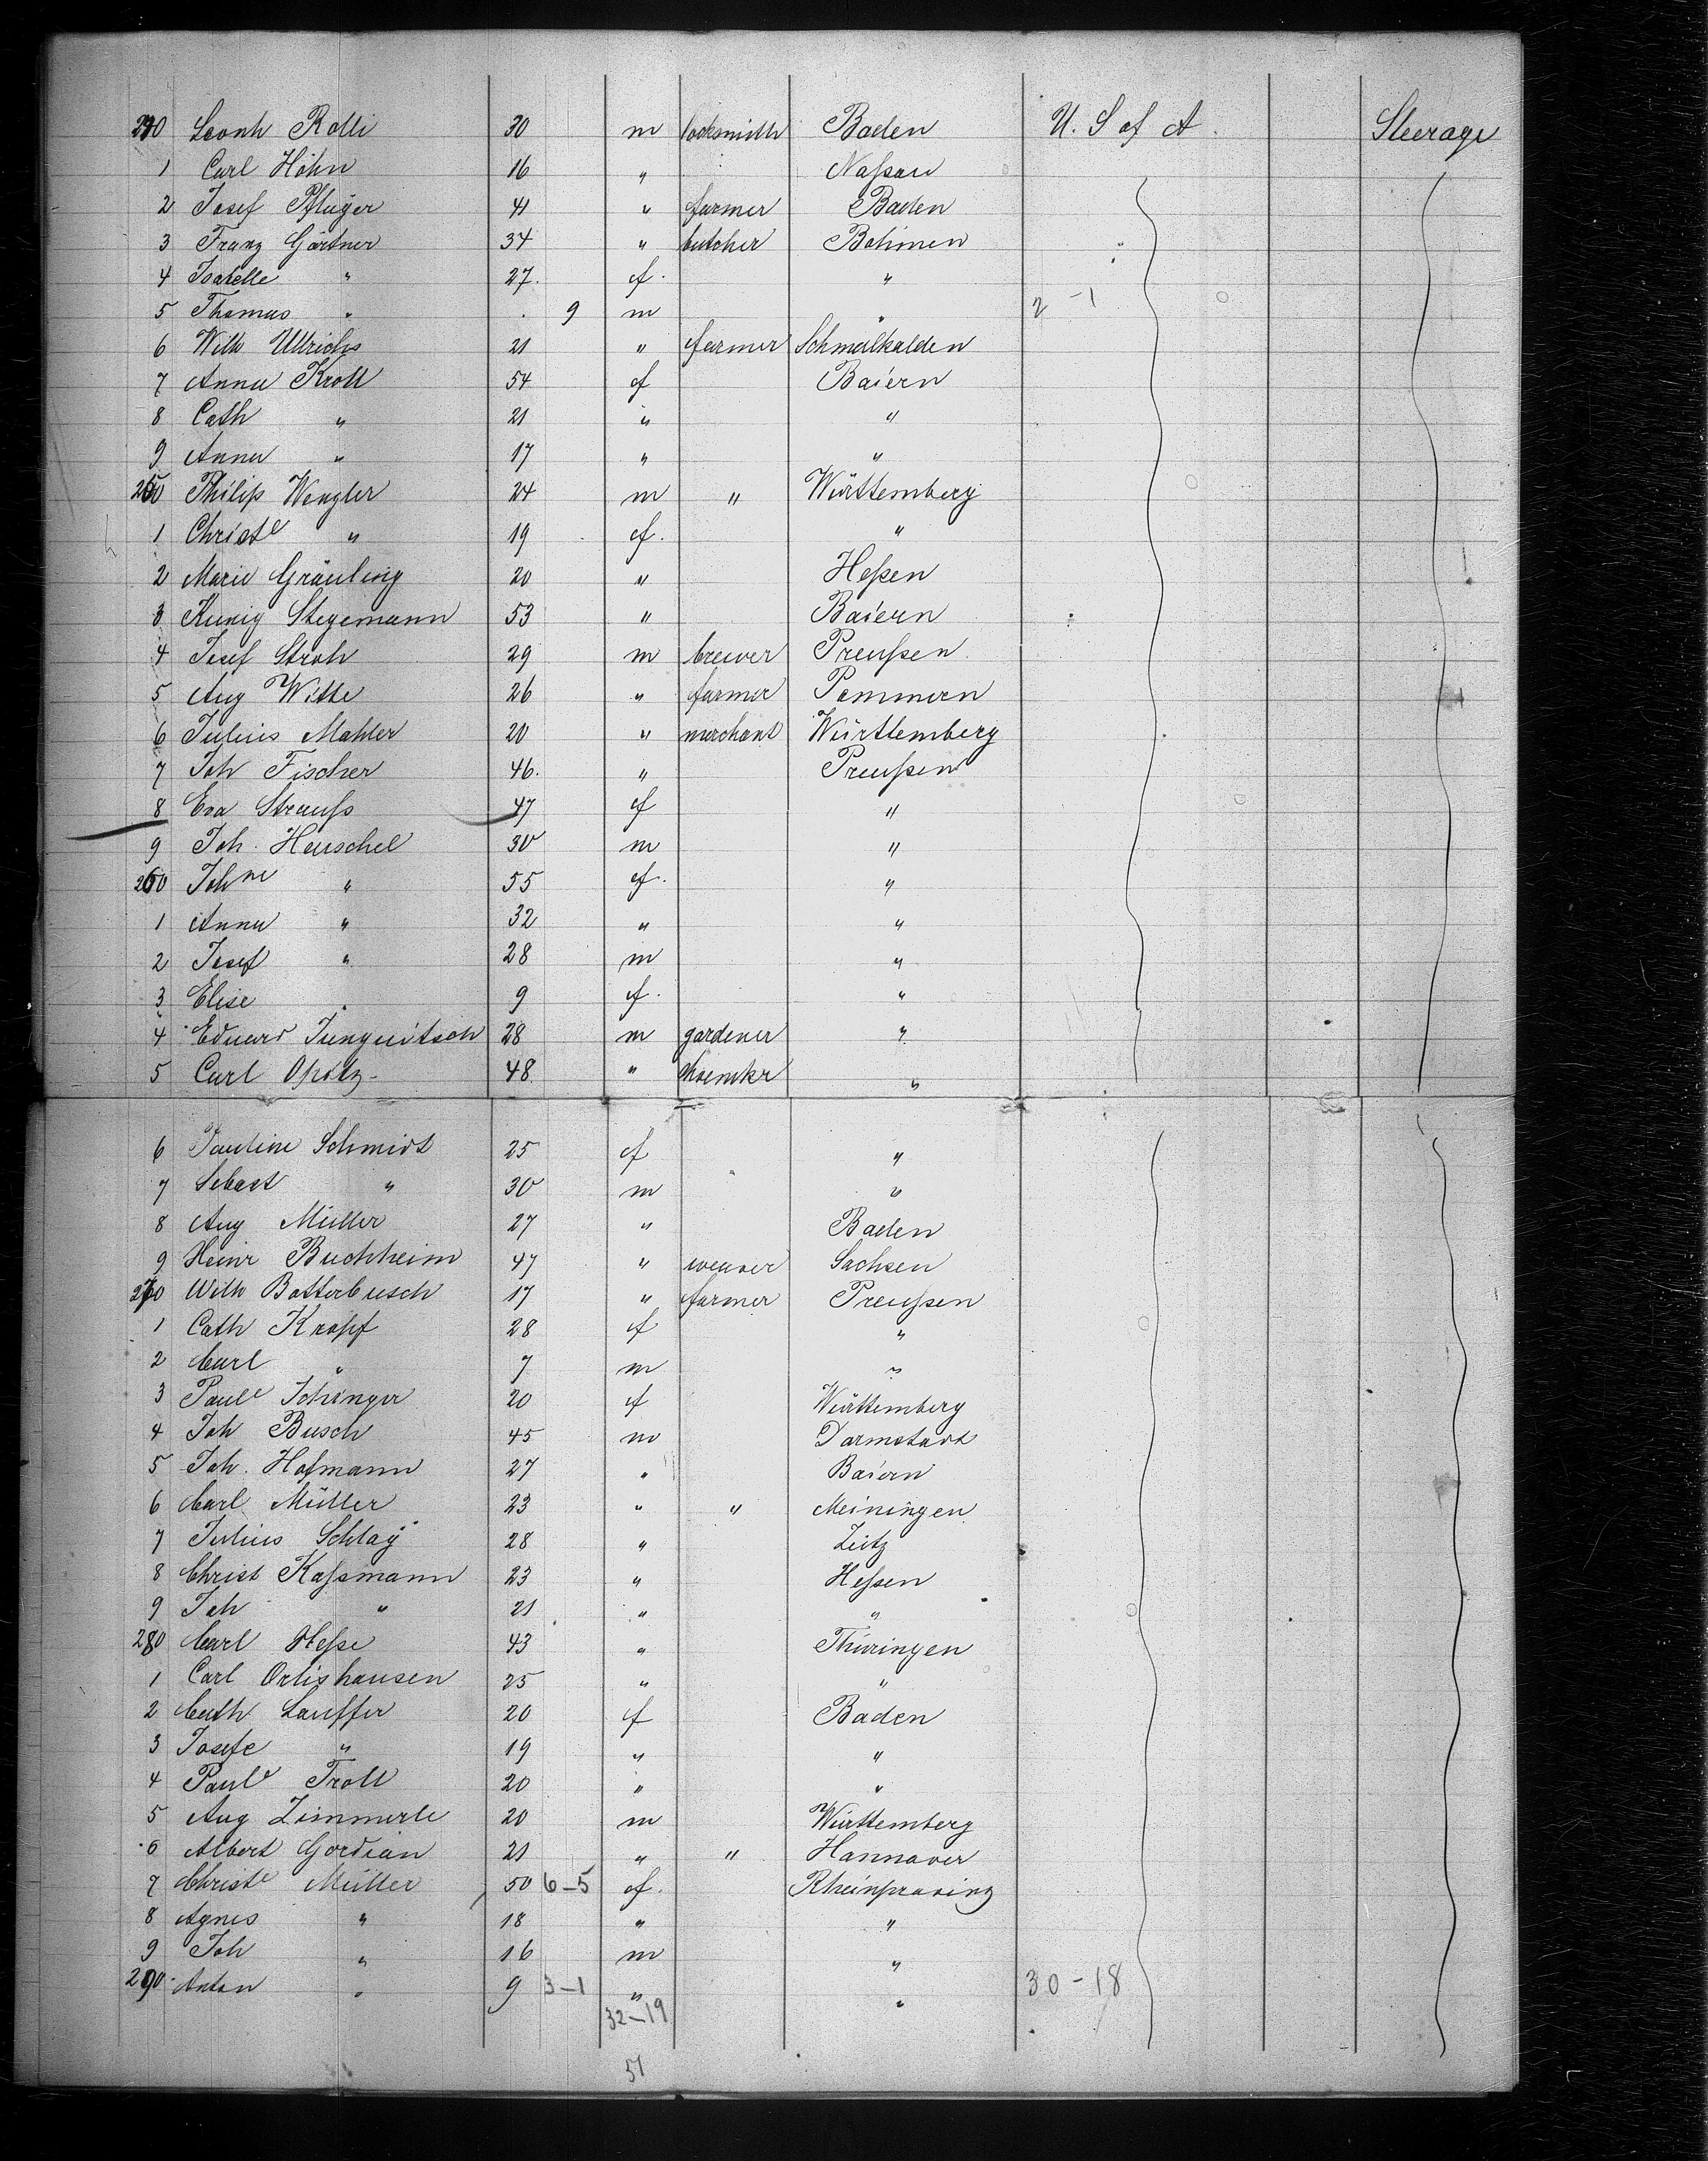 240 Leonh Rolli 30 m locksmith Baden U. S of A. Steerage
1 Carl Höhn 16 " Naßau
2 Josef Pflüger 41 " farmer Baden
3 Franz Gärtner 34 " butcher Böhmen
4 Isabelle " 27. f. "
5 Thomas " 9 m " 2 - 1
6 Wilh Ullrichs 21 " farmer Schmalkalden
7 Anna Kroll 54 f Baiern
8 Cath " 21 " "
9 Anna " 17 " "
250 Philip Wengler 24 m " Württemberg
1 Christe " 19 f. "
2 Marie Gräuling 20 " Heßen
3 Kunig Stegemann 53 " Baiern
4 Josef Stroh 29 m brewer Preußen
5 Aug Witte 26 " farmer Pommern
6 Julius Mahler 20 " merchant Württemberg
7 Joh Fischer 46. " Preußen
8 Eva Strauß 47 f "
9 Joh. Heuschel 30 m "
260 Johne " 55 f. "
1 Anna " 32 " "
2 Josef " 28 m "
3 Elise " 9 f. "
4 Eduard Jungnitsch 28 m gardener "
5 Carl Opitz 48 " shoemkr "
6 Pauline Schmidt 25 f "
7 Sebast " 30 m "
8 Aug Müller 27 " Baden
9 Heinr Buchheim 47 " weaver Sachsen
270 Wilh Botterbusch 17 " farmer Preußen
1 Cath Kropf 28 f "
2 Carl " 7 m "
3 Paule 20 f Württemberg
4 Joh Busch 45 m Darmstadt
5 Joh. Hofmann 27 " Baiern
6 Carl Müller 23 " " Meiningen
7 Julius Schlag 28 " Zeitz
8 Christ Kaßmann 23 " Heßen
9 Joh " 21 " "
280 Carl Heße 43 " Thüringen
1 Carl Ortishausen 25 " "
2 Cath Lauffer 20 f Baden
3 Josefe " 19 " "
4 Paule Troll 20 " "
5 Aug Zimmerle 20 m Württemberg
6 Albert Gordian 21 " " Hannover
7 Christe Müller 50 6-5 f. Rheinprovinz
8 Agnes " 18 " "
9 Joh " 16 m "
290 Anton " 9 3-1 " " 30-18
32-19
51